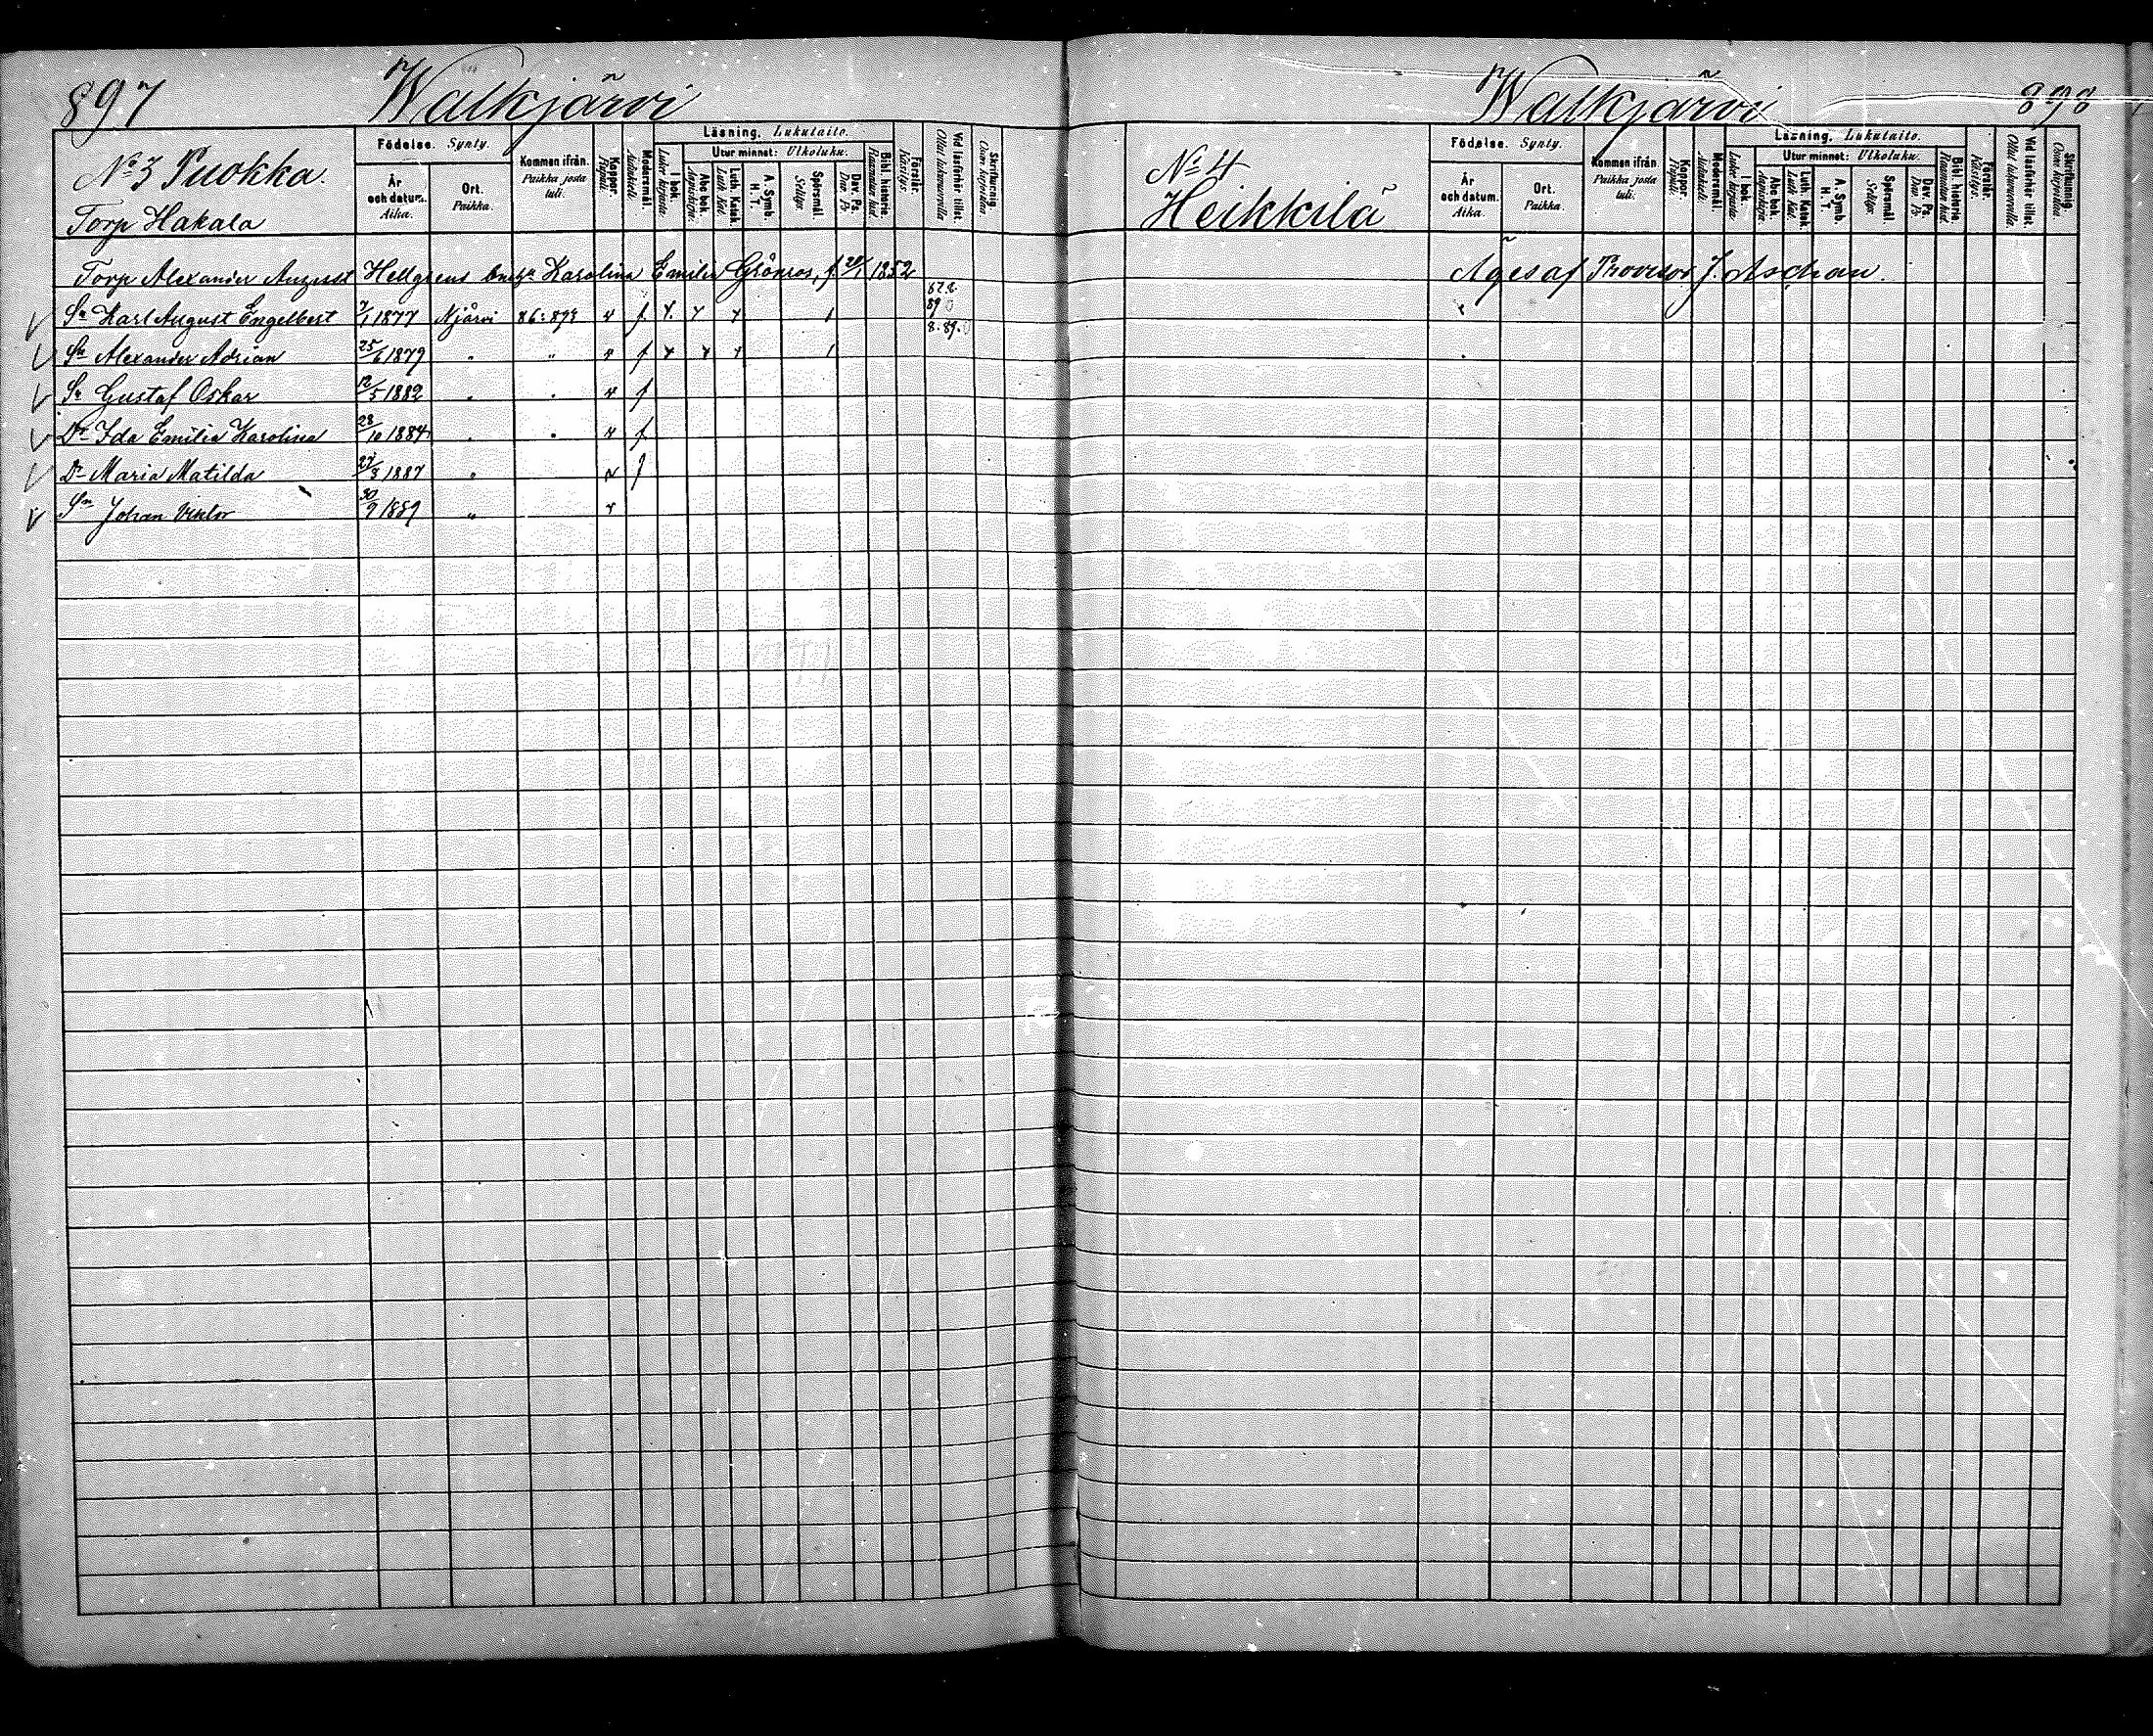 897 Walkjärvi
No 3 Puokka.
Torp Hakala
Födelse. Synty.
År och datum. Aika.
Ort. Paikka.
Kommen ifrån. Paikka josta tuli.
Koppor. Rupuli.
Modersmål. Äidinkieli.
Läsning. Lukutaito.
I bok. Lukee kirjasta.
Utur minnet: Ulkoluku.
Abc bok. Aapiskirja.
Luth. Katek. Luth. Kat.
A. Symb. H. T.
Spörsmål. Selitys.
Dav. Ps. Dav. Ps.
Bibl. historia. Raamatun hist.
Förstår. Käsitys.
Vid läsförhör tillst. Ollut lukuvuorolla.
Skrifkunnig. Osaa kirjoittaa.
Torp Alexander August Hellgrens Karolina Emilia Grönroos, f. 1852
Sn Karl August Engelbert 7/1 1877 Njärvi 86: 893
Sn Alexander Adrian 25/6 1879 " "
Sn Gustaf Oskar 12/5 1882
Dr Ida Emilia Karolina 28/10 1884
Dr Maria Matilda 27/3 1887
Sn Johan Viktor 30/9 1889 "
Walkjärvi 898
No 4
Heikkilä
Födelse. Synty.
År och datum. Aika.
Ort. Paikka.
Kommen ifrån. Paikka josta tuli.
Koppor. Rupuli.
Modersmål. Äidinkieli.
Läsning. Lukutaito.
I bok. Lukee kirjasta.
Utur minnet: Ulkoluku.
Abc bok. Aapiskirja.
Luth. Katek. Luth. Kat.
A. Symb. H. T.
Spörsmål. Selitys.
Dav. Ps. Dav. Ps.
Bibl. historia. Raamatun hist.
Förstår. Käsitys.
Vid läsförhör tillst. Ollut lukuvuorolla.
Skrifkunnig. Osaa kirjoittaa.
Äges af Provisor J. Aschan.